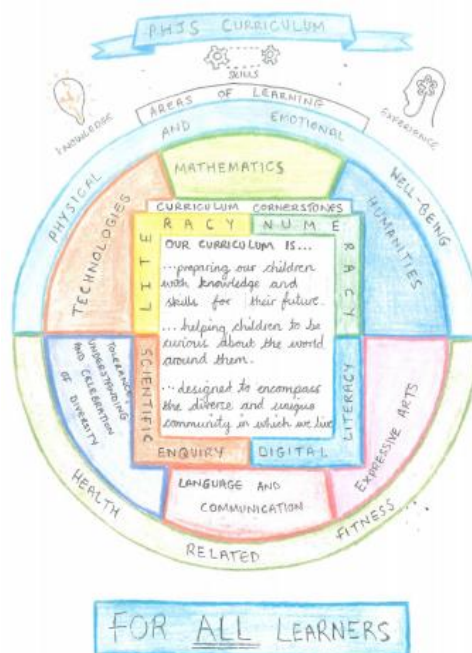 PHJS CURRICULUM
SKILLS
KNOWLEDGE
EXPERIENCE
AREAS OF LEARNING
PHYSICAL AND EMOTIONAL WELL-BEING
MATHEMATICS
TECHNOLOGIES
HUMANITIES
CURRICULUM CORNERSTONES
LITERACY
NUMERACY
OUR CURRICULUM IS...
...preparing our children
with knowledge and
skills for their future.
...helping children to be
curious about the world
around them.
...designed to encompass
the diverse and unique
community in which we live
SCIENTIFIC ENQUIRY
DIGITAL LITERACY
TOLERANCE,
UNDERSTANDING
AND CELEBRATION
OF DIVERSITY
EXPRESSIVE ARTS
LANGUAGE AND
COMMUNICATION
HEALTH RELATED FITNESS...
FOR ALL LEARNERS